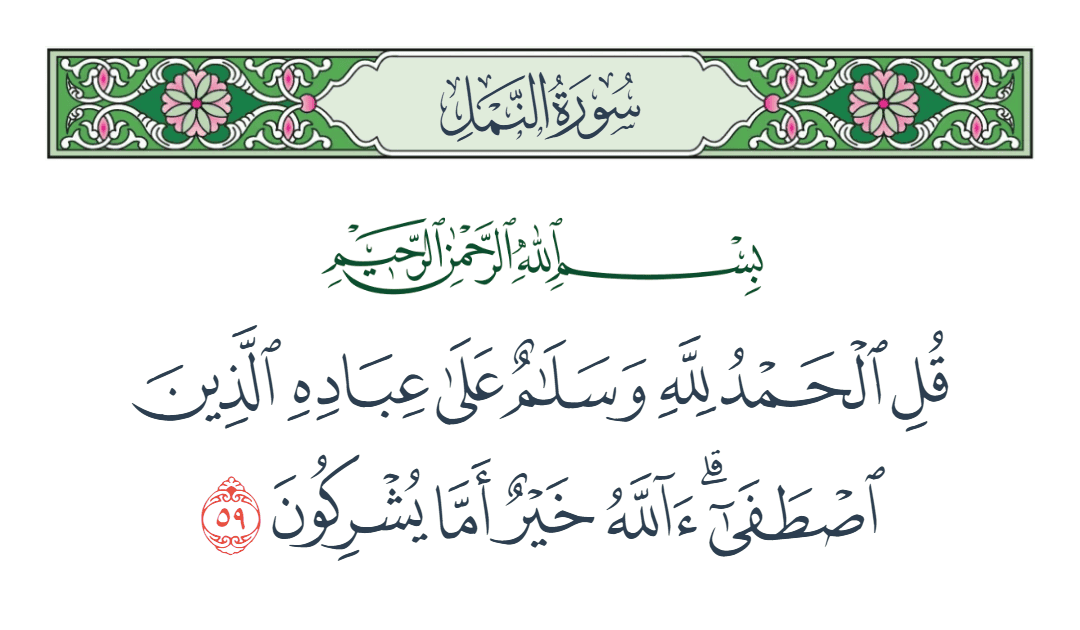 سُورَةُ النَّمْلِ
بِسْمِ ٱللَّهِ ٱلرَّحْمَٰنِ ٱلرَّحِيمِ
قُلِ ٱلْحَمْدُ لِلَّهِ وَسَلَٰمٌ عَلَىٰ عِبَادِهِ ٱلَّذِينَ
ٱصْطَفَىٰٓ ۗ ءَآللَّهُ خَيْرٌ أَمَّا يُشْرِكُونَ ٥٩